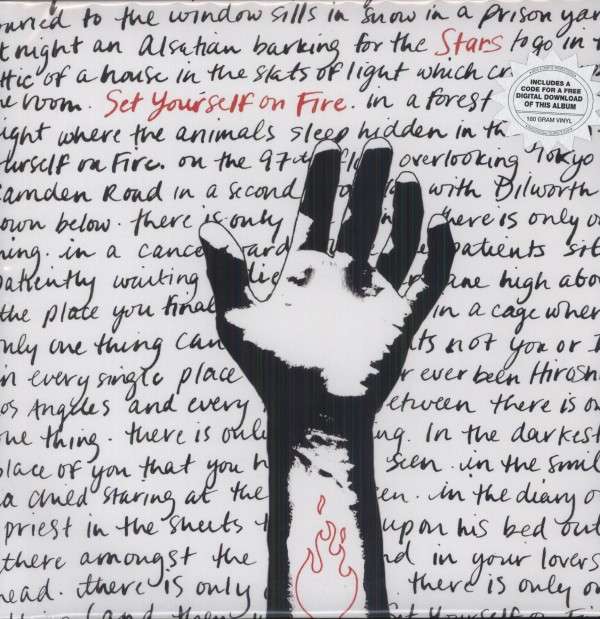 to the window sills in snow in a prison yar
t night an Alsatian barking for the Stars to go in t
ttic of a house in the slats of light which cr
e room. Set Yourself on Fire. in a forest
INCLUDES A
CODE FOR A FREE
DIGITAL DOWNLOAD
OF THIS ALBUM
180 GRAM VINYL
ight where the animals sleep hidden in th
ourself on Fire. on the 97th fl overlooking Tokyo
Camden Road in a second with Dilworth
own below. there is only there is only o
hing. in a cance ard patients sit
patiently waiting die ane high abov
the place you final in a cage wher
nly one thing can ts not you or I
n every single place r ever been Hirosh
os Angeles and every etween there is o
one thing. there is only ng. In the darkest
place of you that you h seen. in the smil
a child staring at the en. in the diary o
priest in the sheets upon his bed out
there amongst the nd in your lovers
head. there is only there is only o
Set Yourself on Fire